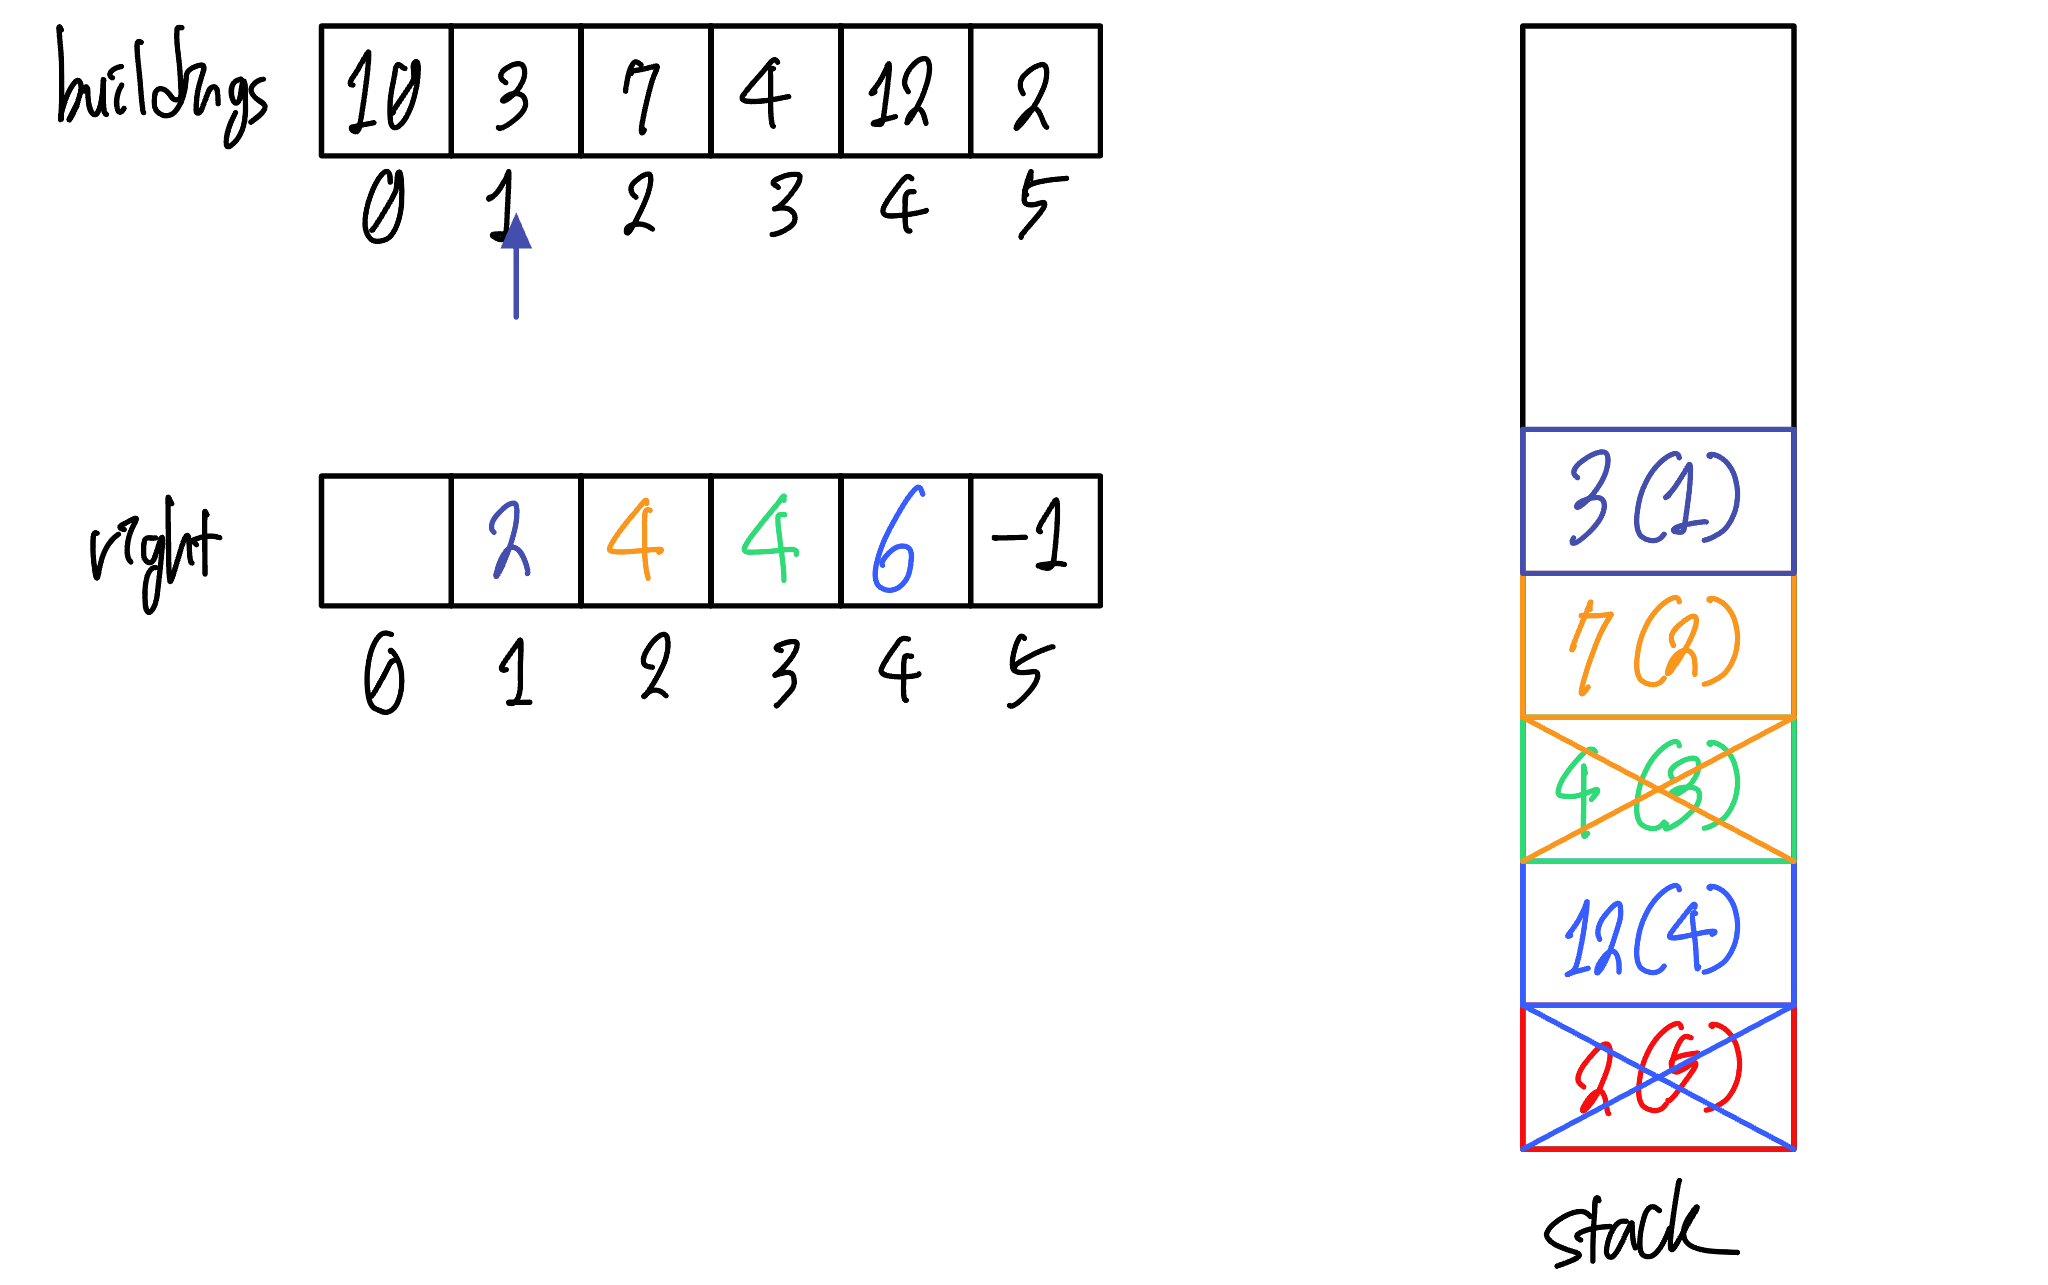 buildings 10 3 7 4 12 2
0 1 2 3 4 5
right 2 4 4 6 -1
0 1 2 3 4 5
3 (1)
7 (2)
4 (3)
12 (4)
2 (5)
stack